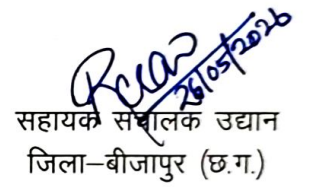 26/05/2026
सहायक संचालक उद्यान
जिला–बीजापुर (छ.ग.)